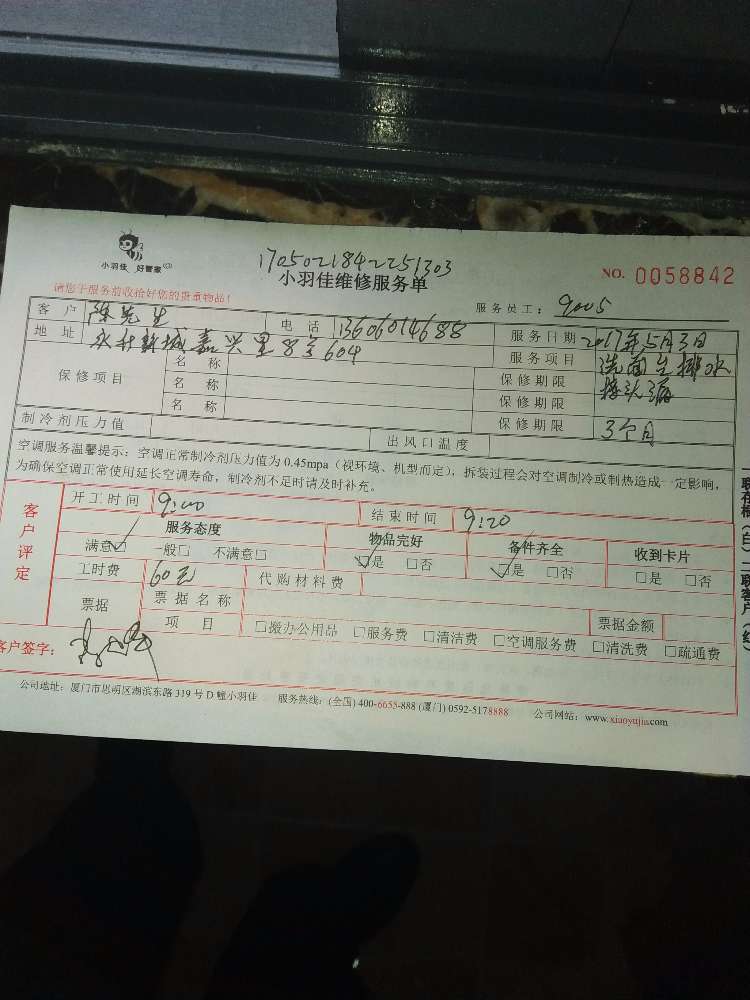 小羽佳 好管家
1705021842251303
小羽佳维修服务单
NO. 0058842
请您于服务前收拾好您的贵重物品!
服务员工: 9005
客户 陈先生 电话 13606014688 服务日期 2017年5月3日
地址 永升新城嘉兴里8号604 服务项目 洗面台排水
接头漏
保修项目 名称 保修期限
名称 保修期限
名称 保修期限 3个月
制冷剂压力值 出风口温度
空调服务温馨提示:空调正常制冷剂压力值为 0.45mpa(视环境、机型而定),拆装过程会对空调制冷或制热造成一定影响,
为确保空调正常使用延长空调寿命,制冷剂不足时请及时补充。
客户评定
开工时间 9:00 结束时间 9:20
服务态度 物品完好 备件齐全 收到卡片
满意☑ 一般□ 不满意□ ☑是 □否 ☑是 □否 □是 □否
工时费 60元 代购材料费
票据 票据名称 票据金额
项目 □搬办公用品 □服务费 □清洁费 □空调服务费 □清洗费 □疏通费
客户签字:
公司地址:厦门市思明区湖滨东路 319 号 D 幢小羽佳 服务热线:(全国) 400-6653-888 (厦门) 0592-5178888 公司网站:www.xiaoyujia.com
联存根(白)二联客户(红)